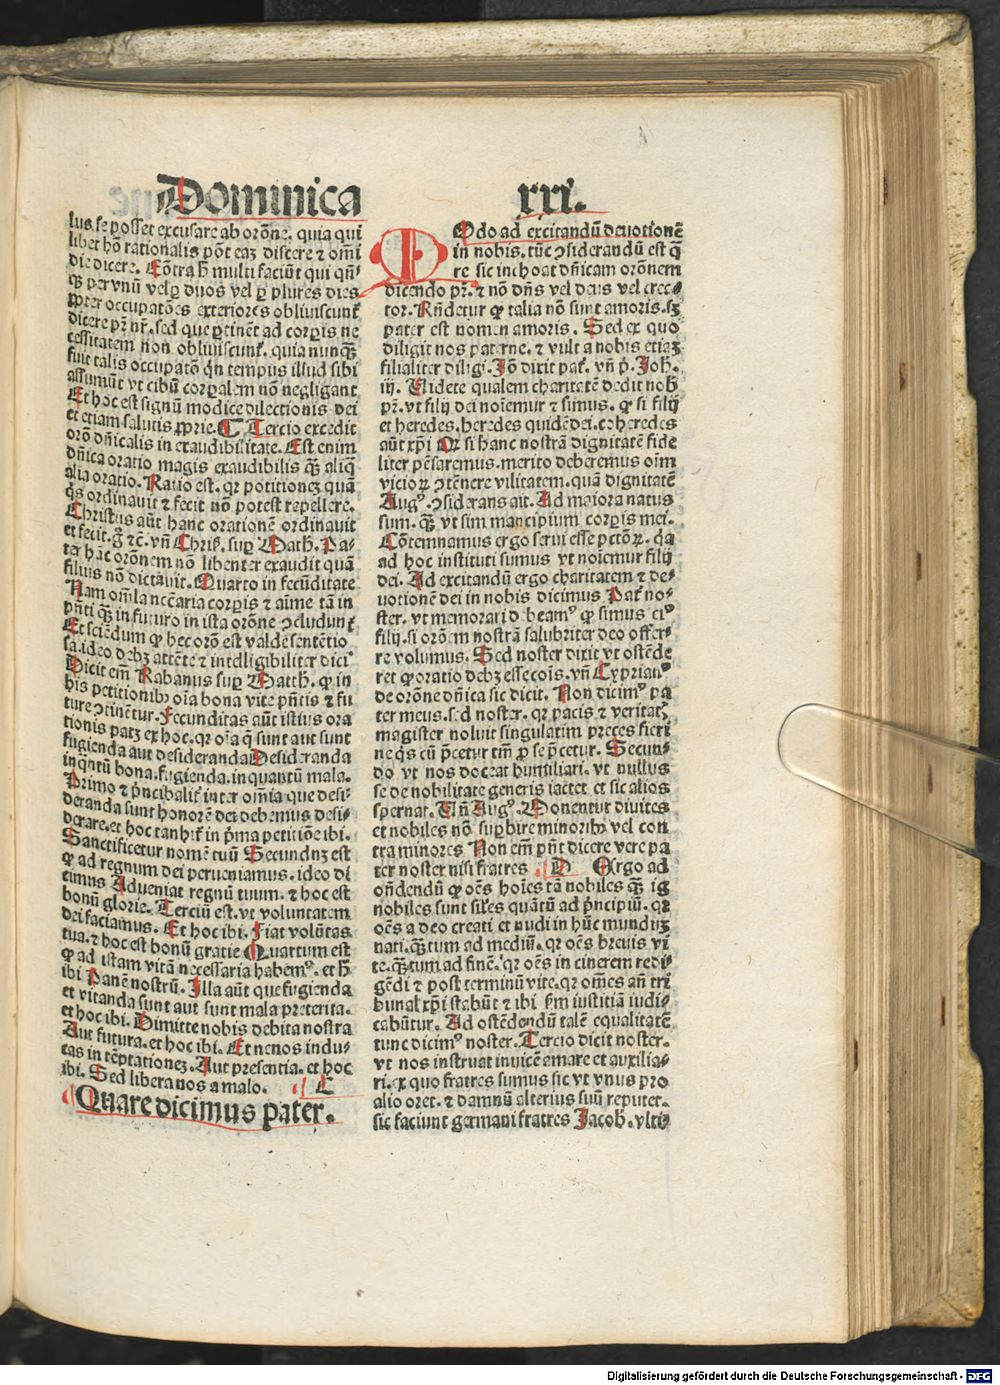 Dominica
xxi.
lus se posset excusare ab orōne. quia qui
libet hō rationalis pōt eaʒ discere ⁊ om̄i
die dicere. Cōtra h̄ multi faciūt qui qn̄⸗
qꝫ per vnū vel ꝑ duos vel ꝑ plures dies
ꝓpter occupatōes exteriores obliuiscunt᷑
dicere pr̄ nr̄. sed que ꝑtinēt ad corpis ne
cessitatem non obliuiscunt᷑. quia nunqꝫ̄
fuit talis occupatō qn̄ tempus illud sibi
assumūt vt cibū corpalem nō negligant
Et hoc est signū modice dilectionis dei
et etiam salutis ꝓprie. ¶ Tercio excedit
orō dn̄icalis in exaudibilitate. Est enim
dn̄ica oratio magis exaudibilis qꝫ̄ aliq̄
alia oratio. Ratio est. qꝛ potitioneʒ quā
q̇s ordinauit ⁊ fecit nō potest repellere.
Christus aūt hanc orationē ordinauit
et fecit. g̊ ⁊c̄. vn̄ Chris. suꝑ Math. Pa⸗
ter hāc orōnem nō libenter exaudit quā
filius nō dictauit. Quarto in fecūditate
Nam om̄ia necēaria corpis ⁊ aīme tā in
pn̄ti qꝫ̄ in futuro in ista orōne ↄcludunt᷑
Et sciēdum ꝙ hec orō est valde sentētio
sa. ideo debʒ attēte ⁊ intelligibiliter dici
Dicit em̄ Rabanus suꝑ Matth. ꝙ in
his petitionibꝫ oīa bona vite pn̄tis ⁊ fu
ture ↄtinētur. Fecunditas aūt istius ora
tionis patʒ ex hoc. qꝛ oīa q̄ sunt aut sunt
fugienda aut desideranda Desideranda
inq̄ntū bona. fugienda. inquantū mala.
Primo ⁊ p̄ncibalit᷑ inter om̄ia que desi⸗
deranda sunt honorē dei debemus desi⸗
derare. et hoc tanḡit᷑ in p̄ma petitiōe ibi.
Sanctificetur nomē tuū Secundūʒ est
ꝙ ad regnum dei perueniamus. ideo di
cimus Adueniat regnū tuum. ⁊ hoc est
bonū glorie. Terciū est. vt voluntatem
dei faciamus. Et hoc ibi. Fiat volūtas
tua. ⁊ hoc est bonū gratie Quartum est
ꝙ ad istam vitā necessaria habemꝰ. et h̄
ibi Panē nostrū. Illa aūt que fugienda
et vitanda sunt aut sunt mala preterita.
et hoc ibi. Dimitte nobis debita nostra
Aut futura. et hoc ibi. Et ne nos indu⸗
cas in tēptationeʒ. Aut presentia. et hoc
ibi. Sed libera nos a malo. C
Quare dicimus pater.
MOdo ad excitandū deuotionē
in nobis. tūc ↄsiderandū est q̄
re sic inchoat dn̄icam orōnem
dicendo pr̄. ⁊ nō dn̄s vel deus vel crea⸗
tor. Rn̄detur ꝙ talia nō sunt amoris. sʒ
pater est nomen amoris. Sed ex quo
diligit nos paterne. ⁊ vult a nobis etiaʒ
filialiter diligi. Jō dixit pat᷑. vn̄ p̄. Joh.
iij. Uidete qualem charitatē dedit nob
pr̄. vt filij dei noīemur ⁊ simus. ꝙ si filij
et heredes. heredes quidē dei. coheredes
aūt xp̄i Qꝛ si hanc nostrā dignitatē fide
liter pēsaremus. merito deberemus oīm
vicioꝝ ↄtēnere vilitatem. quā dignitatē
Augꝰ. ↄsiderans ait. Ad maiora natus
sum. qꝫ̄ vt sim mancipium corpis mei.
Cōtemnamus ergo serui esse pctōꝝ. q̇a
ad hoc instituti sumus vt noīemur filij
dei. Ad excitandū ergo charitatem ⁊ de⸗
uotionē dei in nobis dicimus Pat᷑ no⸗
ster. vt memorari debeamꝰ ꝙ simus eiꝰ
filij. si orōem nostrā salubriter deo offer⸗
re volumus. Sed noster dixit vt ostēde
ret ꝙ oratio debʒ esse cōis. vn̄ Cyprianꝰ
de orōne dn̄ica sic dicit. Non dicimꝰ pa
ter meus. sed noster. qꝛ pacis ⁊ veritatꝭ
magister noluit singulatim preces fieri
ne q̇s cū p̄cetur tm̄ ꝓ se p̄cetur. Secun⸗
do vt nos doceat humiliari. vt nullus
se de nobilitate generis iactet et sic alios
spernat. Un̄ Augꝰ. Monentur diuites
et nobiles nō suꝑbire minoribꝫ vel con
tra minores Non em̄ pn̄t dicere vere pa
ter noster nisi fratres D Ergo ad
on̄dendū ꝙ oēs hoīes tā nobiles qꝫ̄ ig
nobiles sunt sil̄es quātū ad p̄ncipiū. qꝛ
oēs a deo creati et nudi in hūc mundūʒ
nati. qꝫ̄tum ad mediū. qꝛ oēs breuis vi
te. qꝫ̄tum ad finē. qꝛ oēs in cinerem redi⸗
gēdi ⁊ post terminū vite. qꝛ om̄es an̄ tri
bunal xp̄i stabūt ⁊ ibi ẜm iustitiā iudi⸗
cabūtur. Ad ostēdendū talē equalitatē
tunc dicimꝰ noster. Tercio dicit noster.
vt nos instruat inuicē amare et auxilia⸗
ri. ex quo fratres sumus sic vt vnus pro
alio oret. ⁊ damnū alterius suū reputet.
sic faciunt germani fratres Jacob. vlti⸗
Digitalisierung gefördert durch die Deutsche Forschungsgemeinschaft - DFG